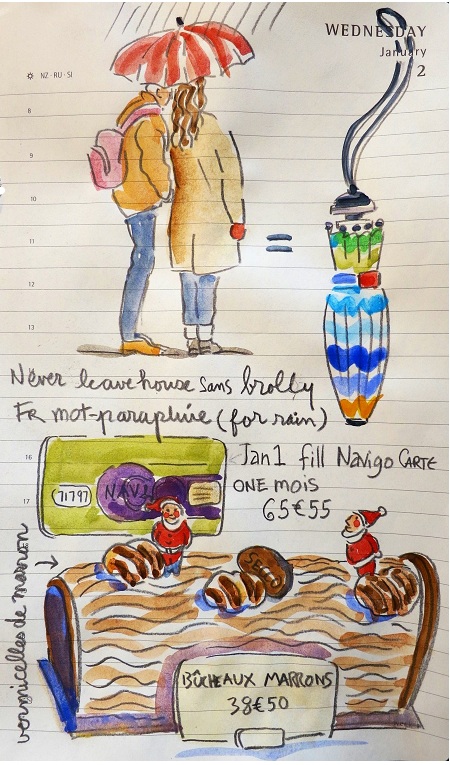 WEDNESDAY
January
2
NZ·RU·SI
8
9
10
11
12
13
=
Never leave house sans brolly
FR mot-parapluie (for rain)
16
17
71797
NAVI
Jan1 fill Navigo CARTE
ONE MOIS
65€55
vermicelles de marron
BÛCHE AUX MARRONS
38€50